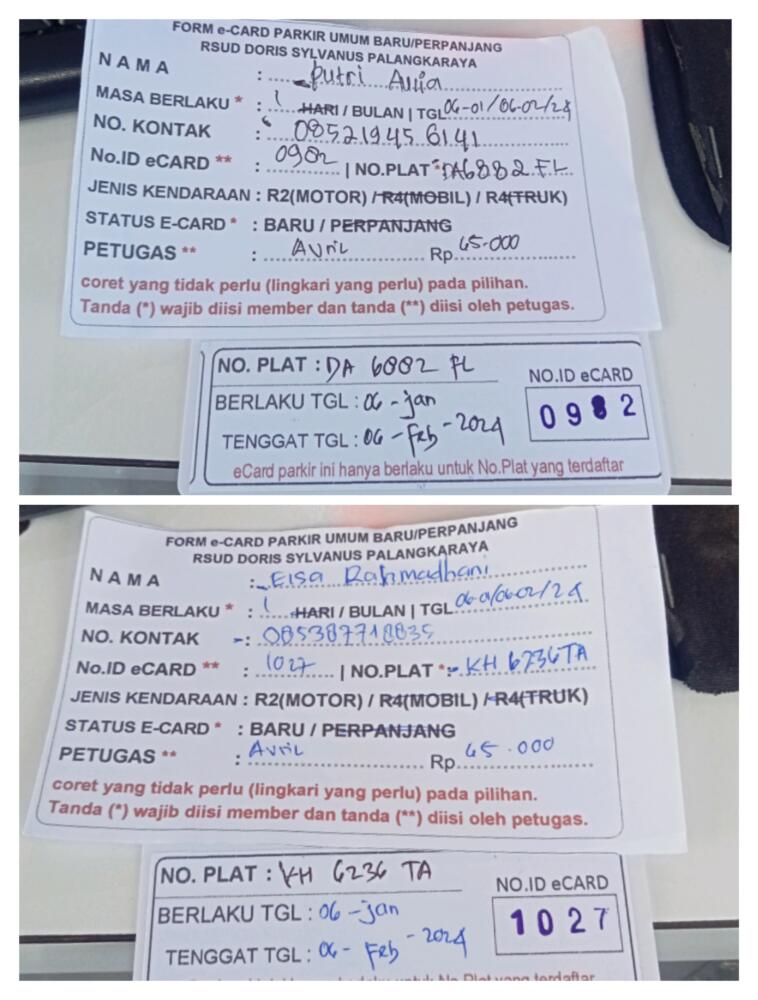 FORM e-CARD PARKIR UMUM BARU/PERPANJANG
RSUD DORIS SYLVANUS PALANGKARAYA
NAMA : Putri Aulia
MASA BERLAKU * : 1 HARI / BULAN | TGL 06-01/06-02/24
NO. KONTAK : 085219456141
No.ID eCARD ** : 0982 | NO.PLAT * DA 6882 FL
JENIS KENDARAAN : R2(MOTOR) / R4(MOBIL) / R4(TRUK)
STATUS E-CARD * : BARU / PERPANJANG
PETUGAS ** : Avril Rp 65.000
coret yang tidak perlu (lingkari yang perlu) pada pilihan.
Tanda (*) wajib diisi member dan tanda (**) diisi oleh petugas.
NO. PLAT : DA 6882 FL
NO.ID eCARD
BERLAKU TGL : 06 - jan
0982
TENGGAT TGL : 06 - Feb - 2024
eCard parkir ini hanya berlaku untuk No.Plat yang terdaftar
FORM e-CARD PARKIR UMUM BARU/PERPANJANG
RSUD DORIS SYLVANUS PALANGKARAYA
NAMA : Elsa Rahmadhani
MASA BERLAKU * : 1 HARI / BULAN | TGL 06-01/06-02/24
NO. KONTAK : 085387718835
No.ID eCARD ** : 1027 | NO.PLAT * : KH 6236 TA
JENIS KENDARAAN : R2(MOTOR) / R4(MOBIL) / R4(TRUK)
STATUS E-CARD * : BARU / PERPANJANG
PETUGAS ** : Avril Rp 65.000
coret yang tidak perlu (lingkari yang perlu) pada pilihan.
Tanda (*) wajib diisi member dan tanda (**) diisi oleh petugas.
NO. PLAT : KH 6236 TA
NO.ID eCARD
BERLAKU TGL : 06 - jan
1027
TENGGAT TGL : 06 - Feb - 2024
No.Plat yang terdaftar